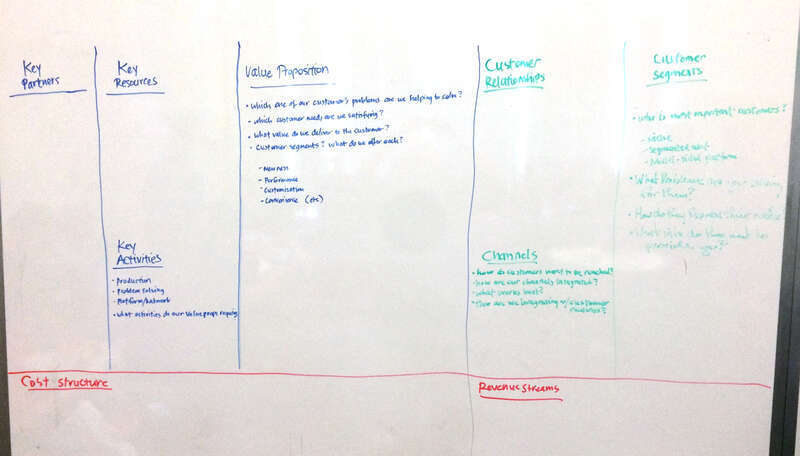 Key
Partners
Key
Resources
Key
Activities
- Production
- Problem solving
- Platform/Network
- What activities do our value props require
Value Proposition
- Which one of our customer's problems are we helping to
- Which customer needs are we satisfying?
- What value do we deliver to the customer?
- Customer segments? What do we offer each?
- Newness
- Performance
- Customisation
- Convenience (etc)
Customer
Relationships
Channels
- How do customers want to be reached?
- How are our channels integrated?
- What works best?
- How are we integrating w/ customer
Customer
Segments
- Who is most important customers?
- Segmented
- Multi-sided platform
- What Problems are
for them?
- How do they
- What
Cost structure
Revenue Streams